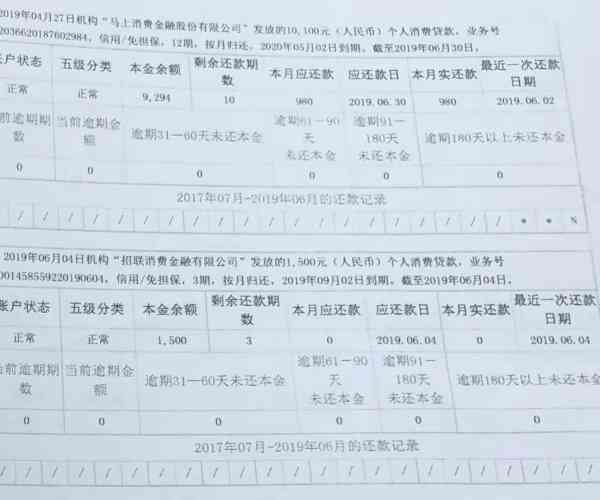 2019年04月27日机构“马上消费金融股份有限公司”发放的10,100元（人民币）个人消费贷款，业务号
2036620187602984，信用/免担保，12期，按月归还，2020年05月02日到期。截至2019年06月30日，
账户状态 五级分类 本金余额 剩余还款期数 本月应还款 应还款日 本月实还款 最近一次还款日期
正常 正常 9,294 10 980 2019.06.30 980 2019.06.02
前逾期期数 当前逾期金额 逾期31—60天未还本金 逾期61—90天未还本金 逾期91—180天未还本金 逾期180天以上未还本金
0 0 0 0 0 0
2017年07月-2019年06月的还款记录
/ / / / / / / / / / / / / / / / / / / / / * * N
2019年06月04日机构“招联消费金融有限公司”发放的1,500元（人民币）个人消费贷款，业务号
001458559220190604，信用/免担保，3期，按月归还，2019年09月02日到期。截至2019年06月04日，
账户状态 五级分类 本金余额 剩余还款期数 本月应还款 应还款日 本月实还款 最近一次还款日期
正常 正常 1,500 3 0 2019.06.04 0 2019.06.04
当前逾期期数 当前逾期金额 逾期31—60天未还本金 逾期61—90天未还本金 逾期91—180天未还本金 逾期180天以上未还本金
0 0 0 0 0 0
2017年07月-2019年06月的还款记录
/ / / / / / / / / / / / / / / / / / / / / / /